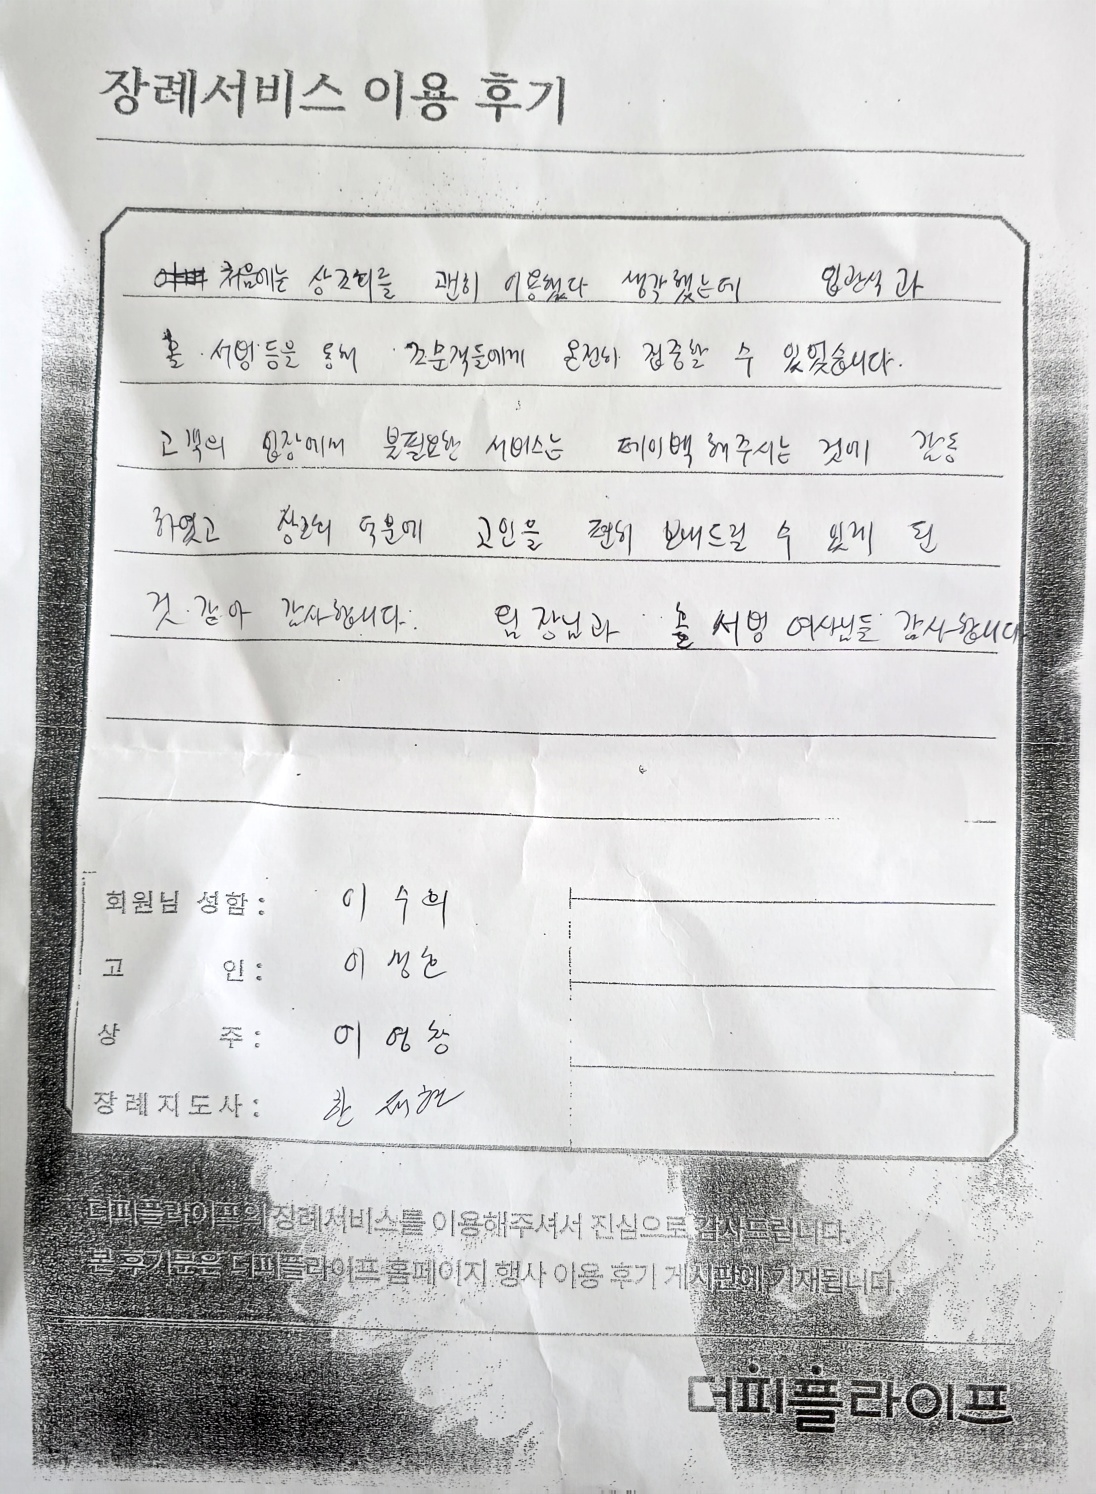 장례서비스 이용 후기
처음에는 상조회를 괜히 이용했다 생각했는데 입관식과
홀 서빙 등을 통해 조문객들에게 온전히 집중할 수 있었습니다.
고객의 입장에서 불필요한 서비스는 페이백 해주시는 것에 감동
하였고 상조회 덕분에 고인을 편히 보내드릴 수 있게 된
것 같아 감사합니다. 팀장님과 홀 서빙 여사님들 감사합니다
회원님 성함 : 이수희
고 인 :
상 주 : 이영창
장례지도사 : 한
더피플라이프의 장례서비스를 이용해주셔서 진심으로 감사드립니다.
본 후기문은 더피플라이프 홈페이지 행사 이용 후기 게시판에 기재됩니다.
더피플라이프